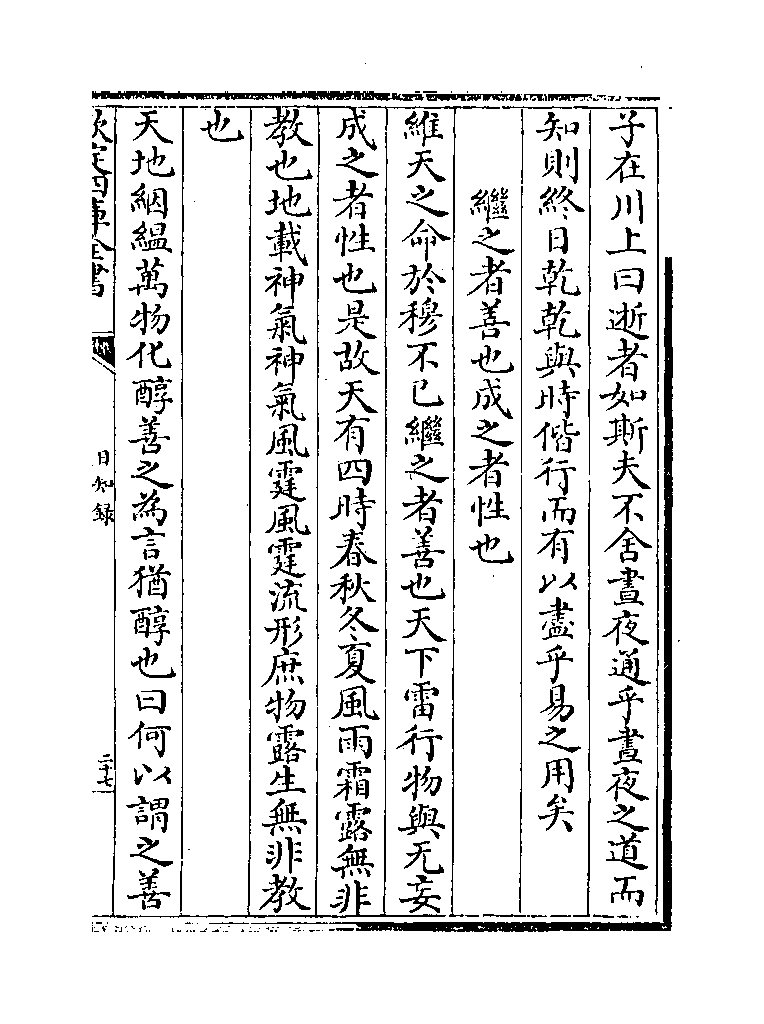 子在川上曰逝者如斯夫不舍晝夜通乎晝夜之道而
知則終日乾乾與時偕行而有以盡乎易之用矣
繼之者善也成之者性也
維天之命於穆不已繼之者善也天下雷行物與无妄
成之者性也是故天有四時春秋冬夏風雨霜露無非
教也地載神氣神氣風霆風霆流形庶物露生無非教
也
天地絪縕萬物化醇善之為言猶醇也曰何以謂之善
欽定四庫全書
日知録
二十七